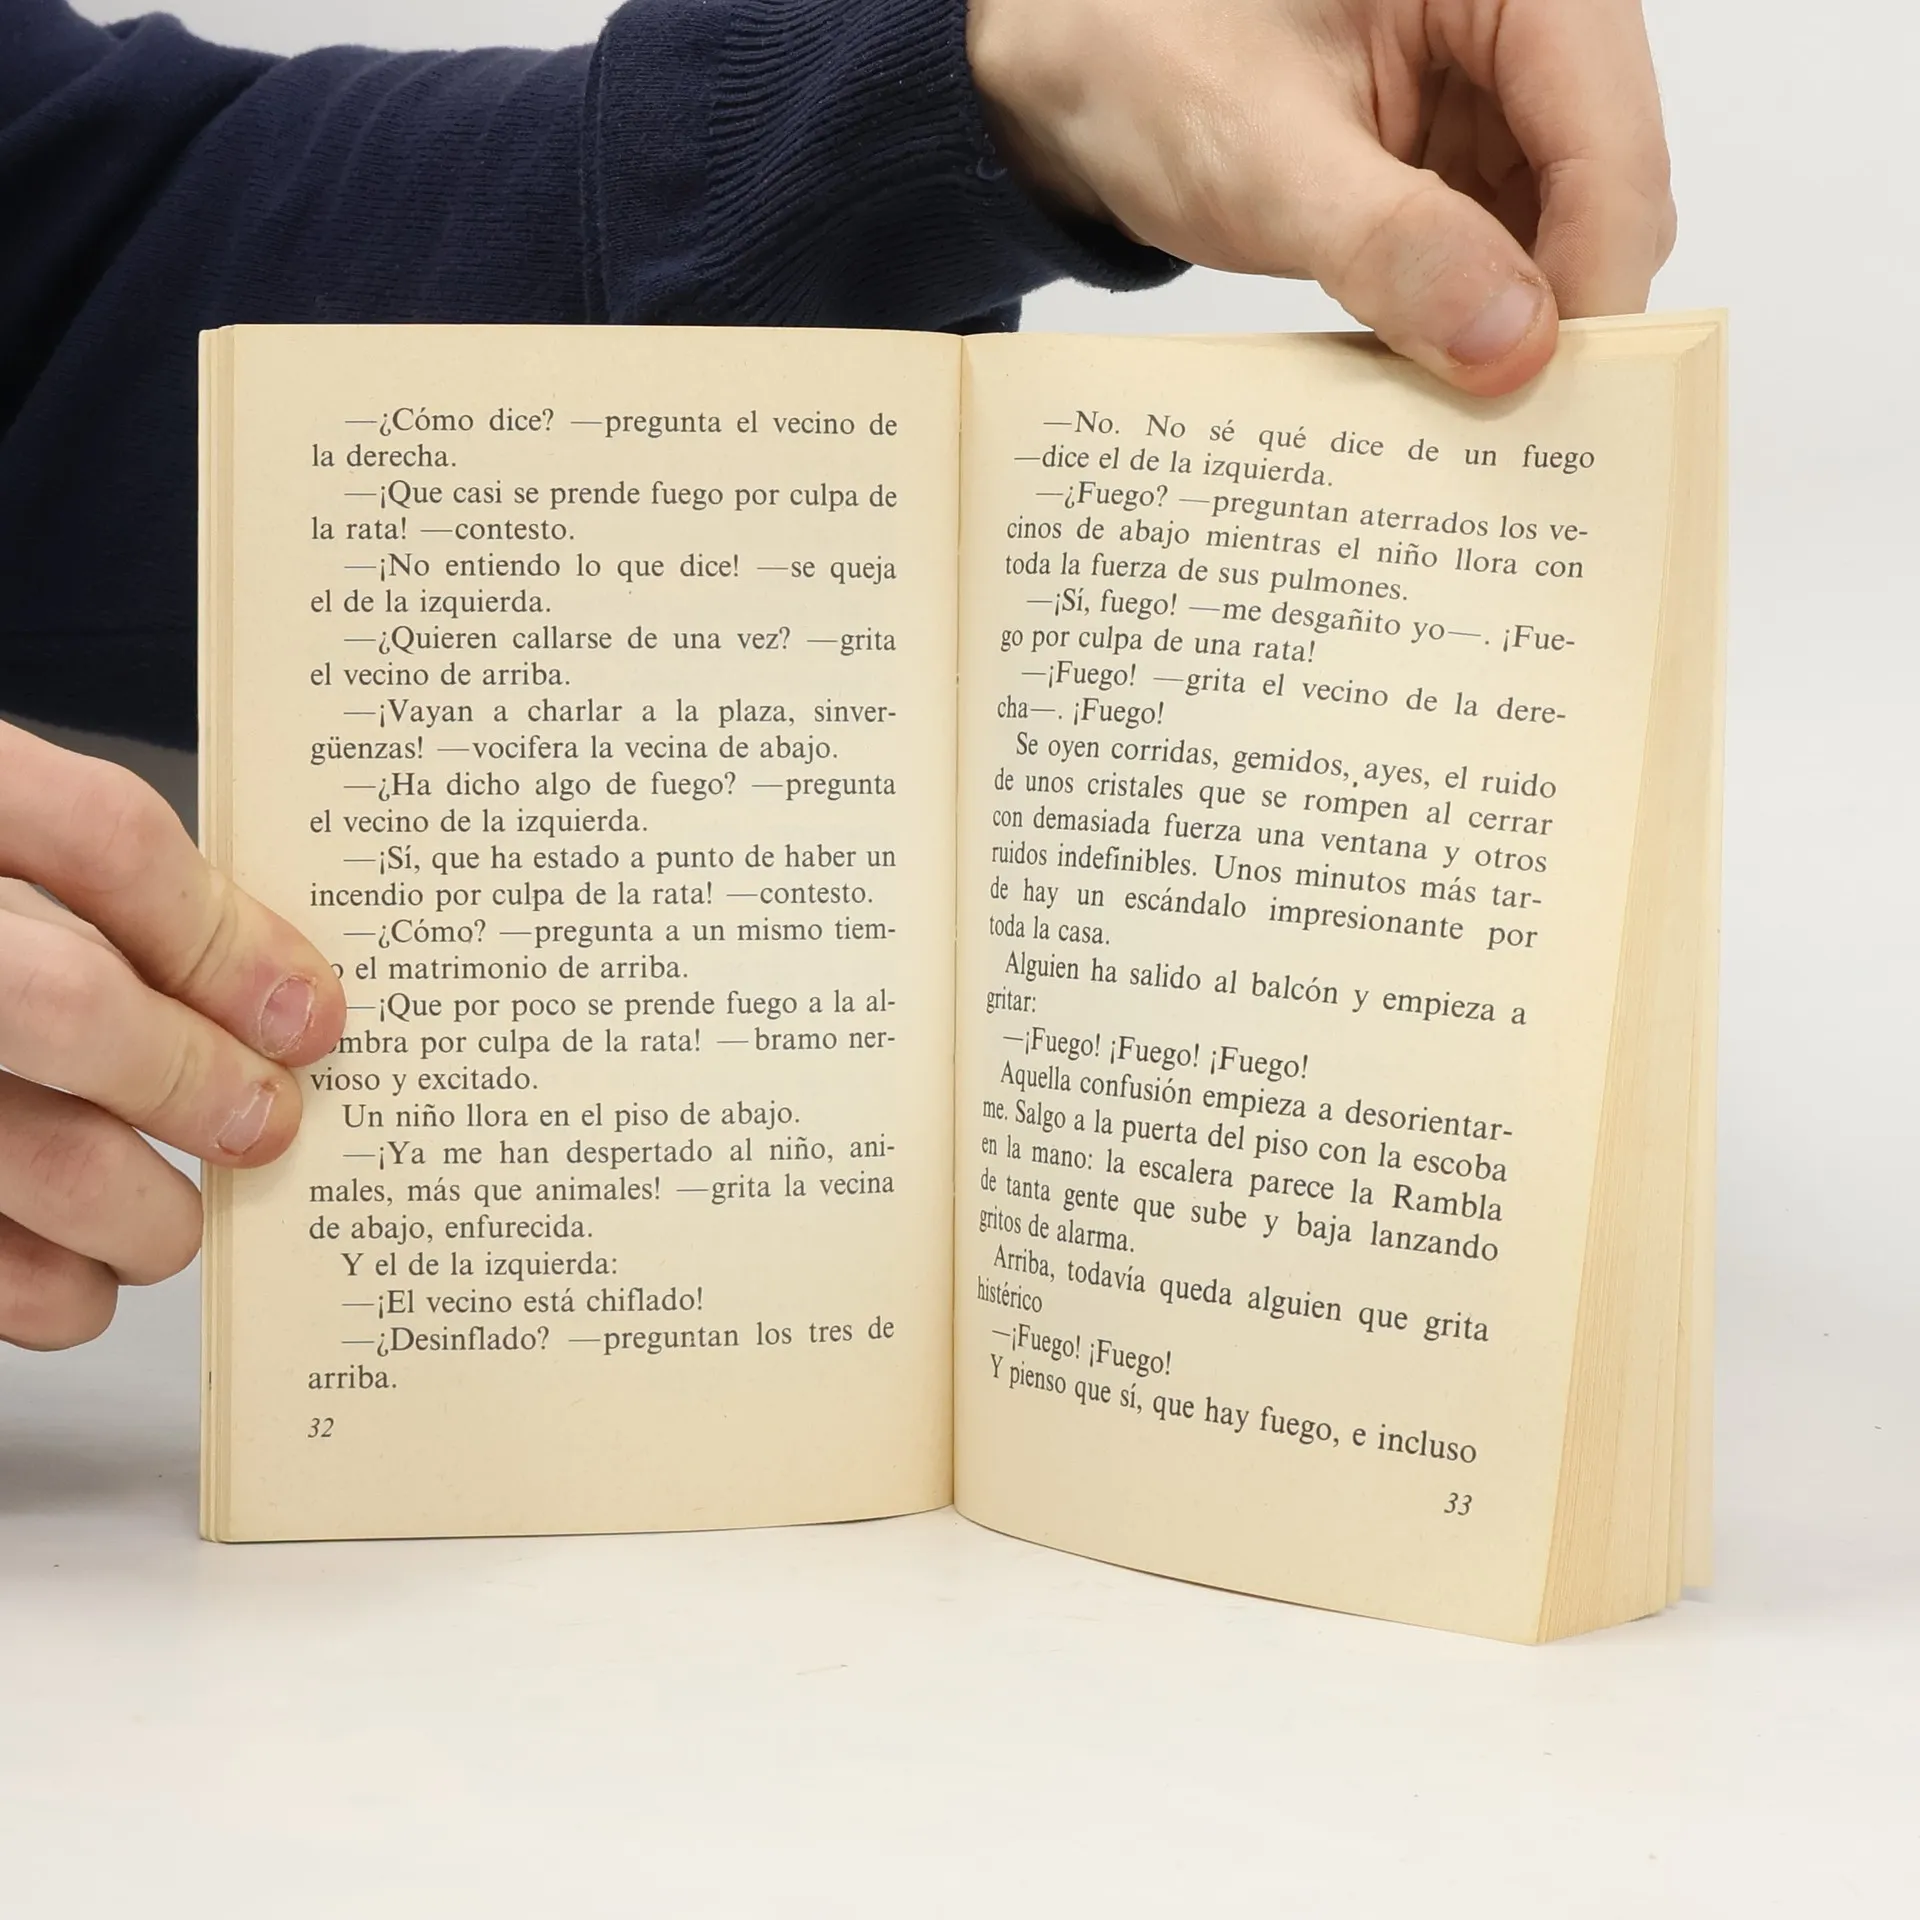 —¿Cómo dice? —pregunta el vecino de
la derecha.
—¡Que casi se prende fuego por culpa de
la rata! —contesto.
—¡No entiendo lo que dice! —se queja
el de la izquierda.
—¿Quieren callarse de una vez? —grita
el vecino de arriba.
—¡Vayan a charlar a la plaza, sinver-
güenzas! —vocifera la vecina de abajo.
—¿Ha dicho algo de fuego? —pregunta
el vecino de la izquierda.
—¡Sí, que ha estado a punto de haber un
incendio por culpa de la rata! —contesto.
—¿Cómo? —pregunta a un mismo tiem-
o el matrimonio de arriba.
—¡Que por poco se prende fuego a la al-
ombra por culpa de la rata! —bramo ner-
vioso y excitado.
Un niño llora en el piso de abajo.
—¡Ya me han despertado al niño, ani-
males, más que animales! —grita la vecina
de abajo, enfurecida.
Y el de la izquierda:
—¡El vecino está chiflado!
—¿Desinflado? —preguntan los tres de
arriba.
32
—No. No sé qué dice de un fuego
—dice el de la izquierda.
—¿Fuego? —preguntan aterrados los ve-
cinos de abajo mientras el niño llora con
toda la fuerza de sus pulmones.
—¡Sí, fuego! —me desgañito yo—. ¡Fue-
go por culpa de una rata!
—¡Fuego! —grita el vecino de la dere-
cha—. ¡Fuego!
Se oyen corridas, gemidos, ayes, el ruido
de unos cristales que se rompen al cerrar
con demasiada fuerza una ventana y otros
ruidos indefinibles. Unos minutos más tar-
de hay un escándalo impresionante por
toda la casa.
Alguien ha salido al balcón y empieza a
gritar:
—¡Fuego! ¡Fuego! ¡Fuego!
Aquella confusión empieza a desorientar-
me. Salgo a la puerta del piso con la escoba
en la mano: la escalera parece la Rambla
de tanta gente que sube y baja lanzando
gritos de alarma.
Arriba, todavía queda alguien que grita
histérico
—¡Fuego! ¡Fuego!
Y pienso que sí, que hay fuego, e incluso
33